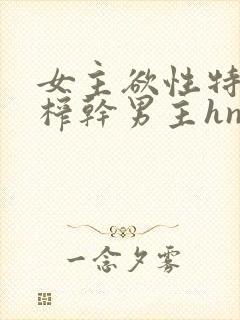 女主欲性特
榨幹男主hn
一念夕雾